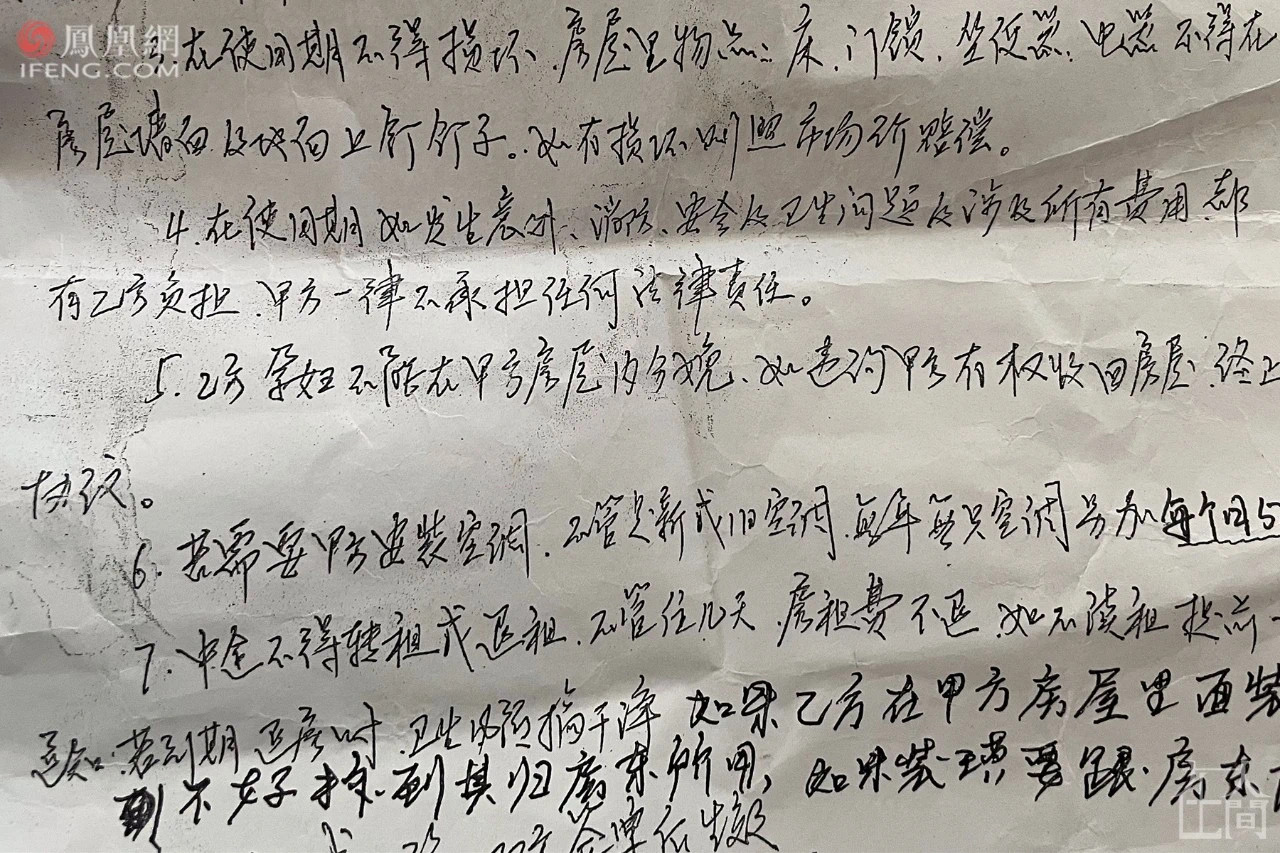 鳳凰網
IFENG.COM
3.在使用期不得损坏、房屋里物品：床、门锁、坐便器、电器不得在
房屋墙面及地面上钉钉子。如有损坏则照市场价赔偿。
4.在使用期如发生意外、消防、安全及卫生问题及涉及所有费用都
有乙方负担、甲方一律不承担任何法律责任。
5.乙方孕妇不能在甲方房屋内分娩、如违约甲方有权收回房屋、终止
协议。
6.若需要甲方安装空调、不管是新或旧空调、每年每只空调另加每个月5
7.中途不得转租或退租、不管住几天、房租费不退、如不续租提前一
通知：若到期退房时、卫生必须搞干净 如果乙方在甲方房屋里面装
不好拆 则其归房东所用，如果装璜要跟房东
工間